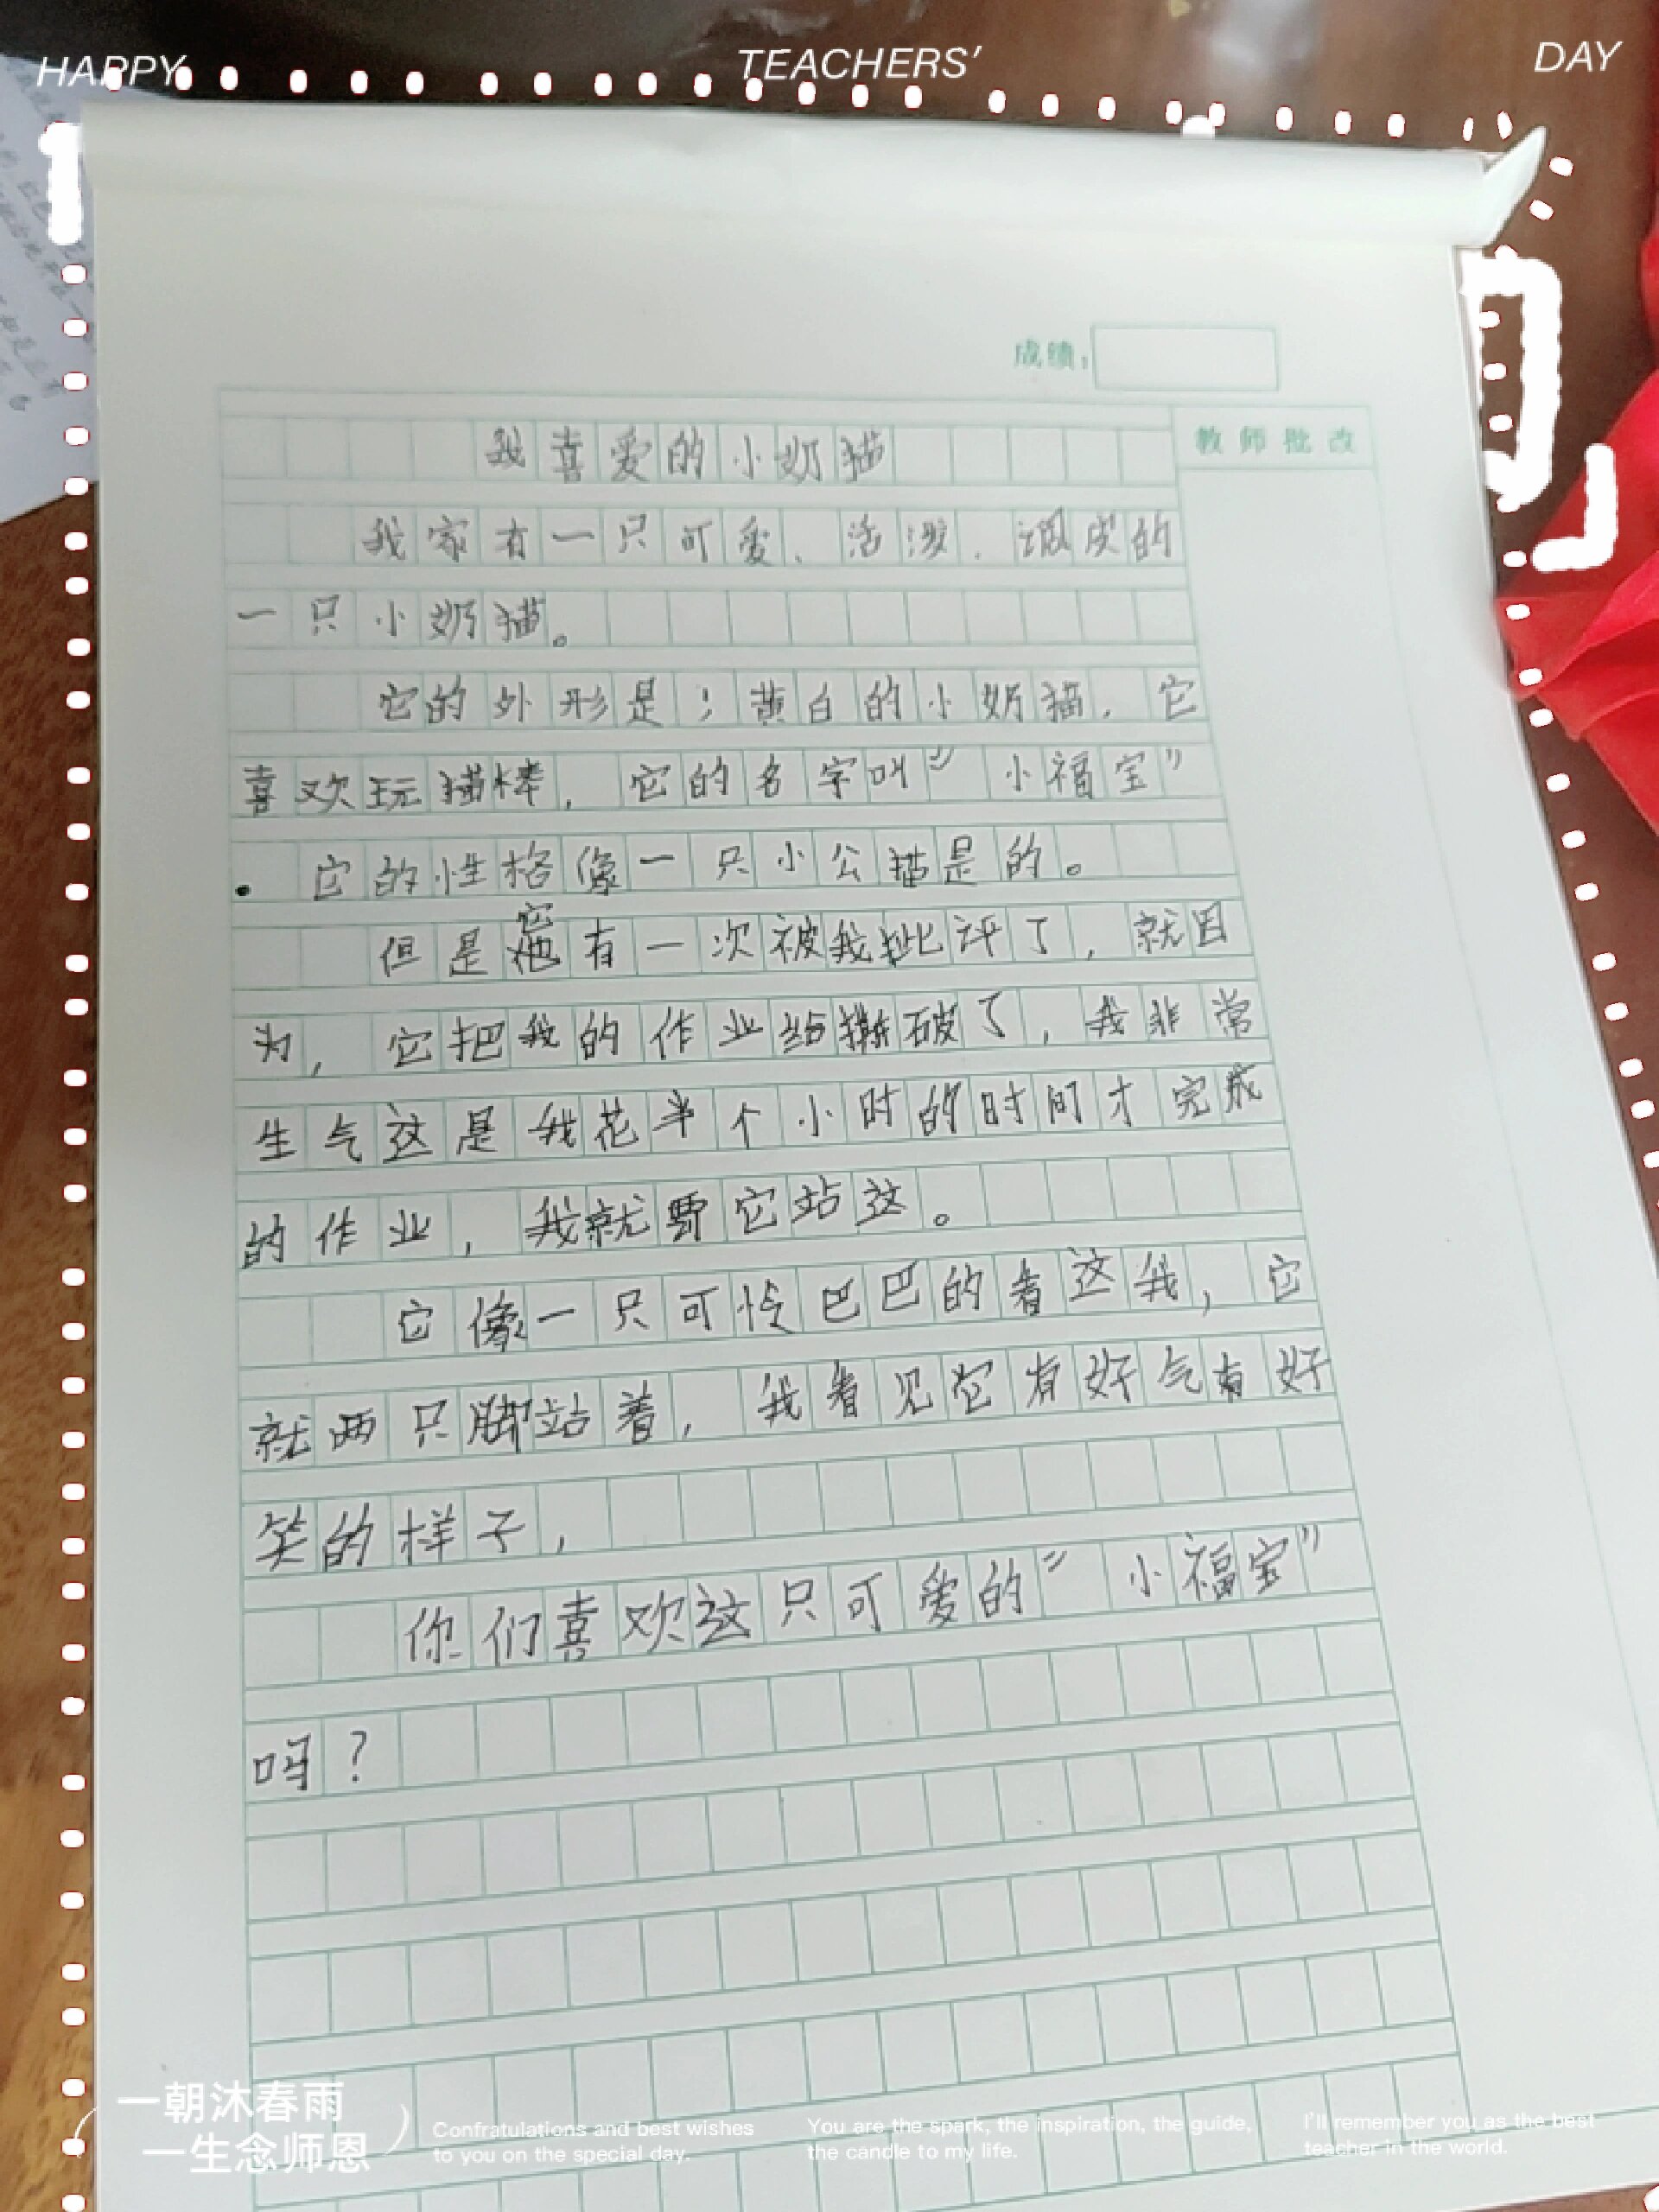 HAPPY TEACHERS' DAY
成绩:
教师批改
我喜爱的小奶猫
我家有一只可爱、活泼、调皮的
一只小奶猫。
它的外形是;黄白的小奶猫,它
喜欢玩猫棒,它的名字叫"小福宝"
.它的性格像一只小公猫是的。
但是它有一次被我批评了,就因
为,它把我的作业给撕破了,我非常
生气这是我花半个小时的时间才完成
的作业,我就要它站这。
它像一只可怜巴巴的看这我,它
就两只脚站着,我看见它有好气有好
笑的样子,
你们喜欢这只可爱的"小福宝"
吗?
一朝沐春雨
一生念师恩
Confratulations and best wishes
to you on the special day.
You are the spark, the inspiration, the guide,
the candle to my life.
I'll remember you as the best
teacher in the world.